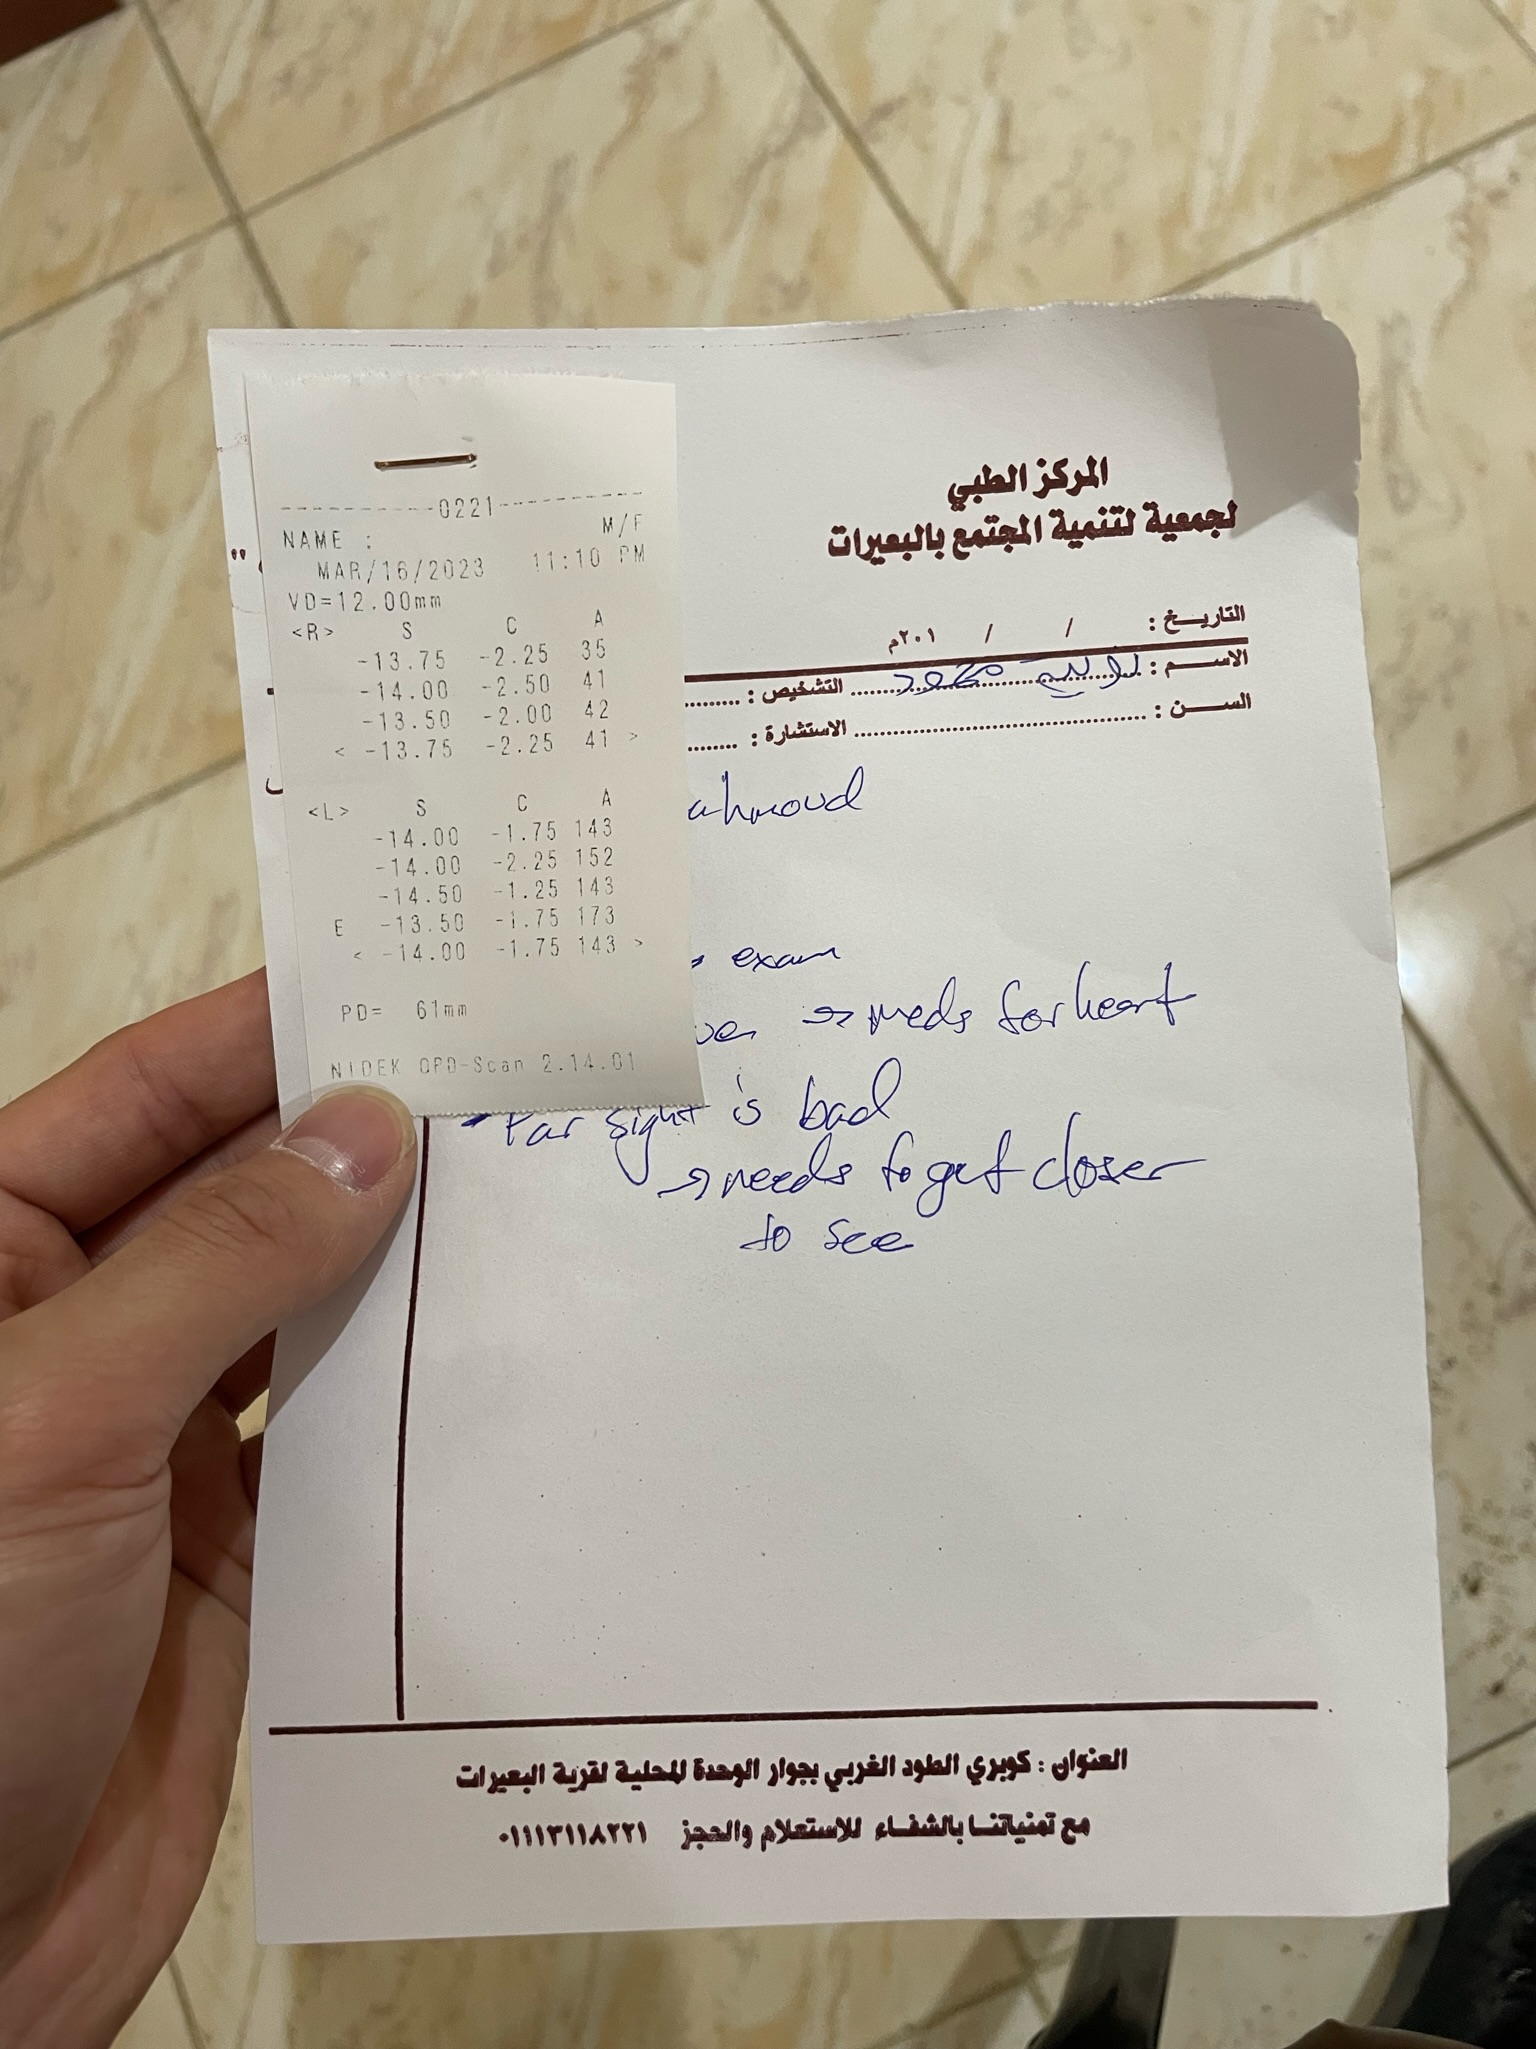 0221
NAME : M/F
MAR/16/2023 11:10 PM
VD=12.00mm
<R> S C A
-13.75 -2.25 35
-14.00 -2.50 41
-13.50 -2.00 42
< -13.75 -2.25 41 >
<L> S C A
-14.00 -1.75 143
-14.00 -2.25 152
-14.50 -1.25 143
E -13.50 -1.75 173
< -14.00 -1.75 143 >
PD= 61mm
NIDEK OPD-Scan 2.14.01
المركز الطبي
لجمعية لتنمية المجتمع بالبعيرات
التاريخ : / / ٢٠١م
الاسم : محمود التشخيص :
السن : الاستشارة :
ahmoud
exam
ver → meds for heart
- Far sight is bad
→ needs to get closer
to see
العنوان : كوبري الطود الغربي بجوار الوحدة المحلية لقرية البعيرات
مع تمنياتنا بالشفاء للاستعلام والحجز ٠١١١٣١١٨٢٢١